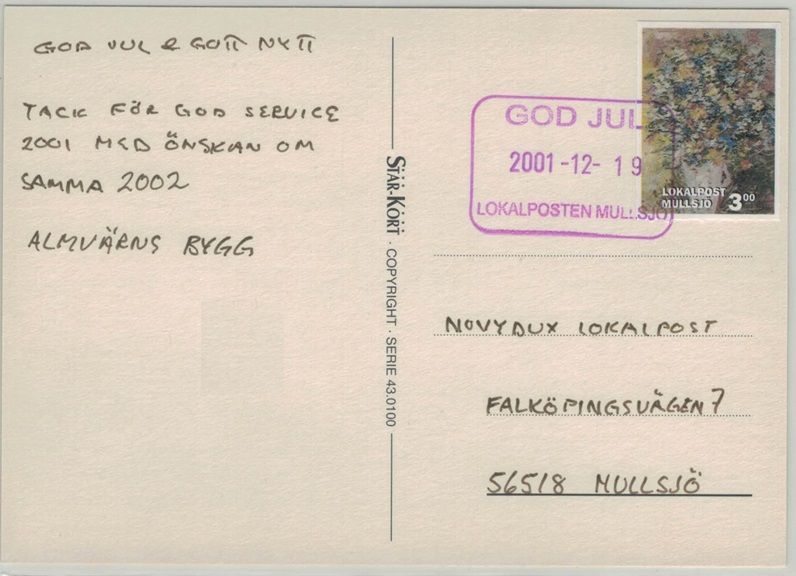 GOD JUL & GOTT NYTT
TACK FÖR GOD SERVICE
2001 MED ÖNSKAN OM
SAMMA 2002
ALMVÄRNS BYGG
STAR-KORT · COPYRIGHT · SERIE 43.0100
GOD JUL
2001-12-19
LOKALPOSTEN MULLSJÖ
LOKALPOST
MULLSJÖ 300
NOVYDUX LOKALPOST
FALKÖPINGSVÄGEN 7
56518 MULLSJÖ